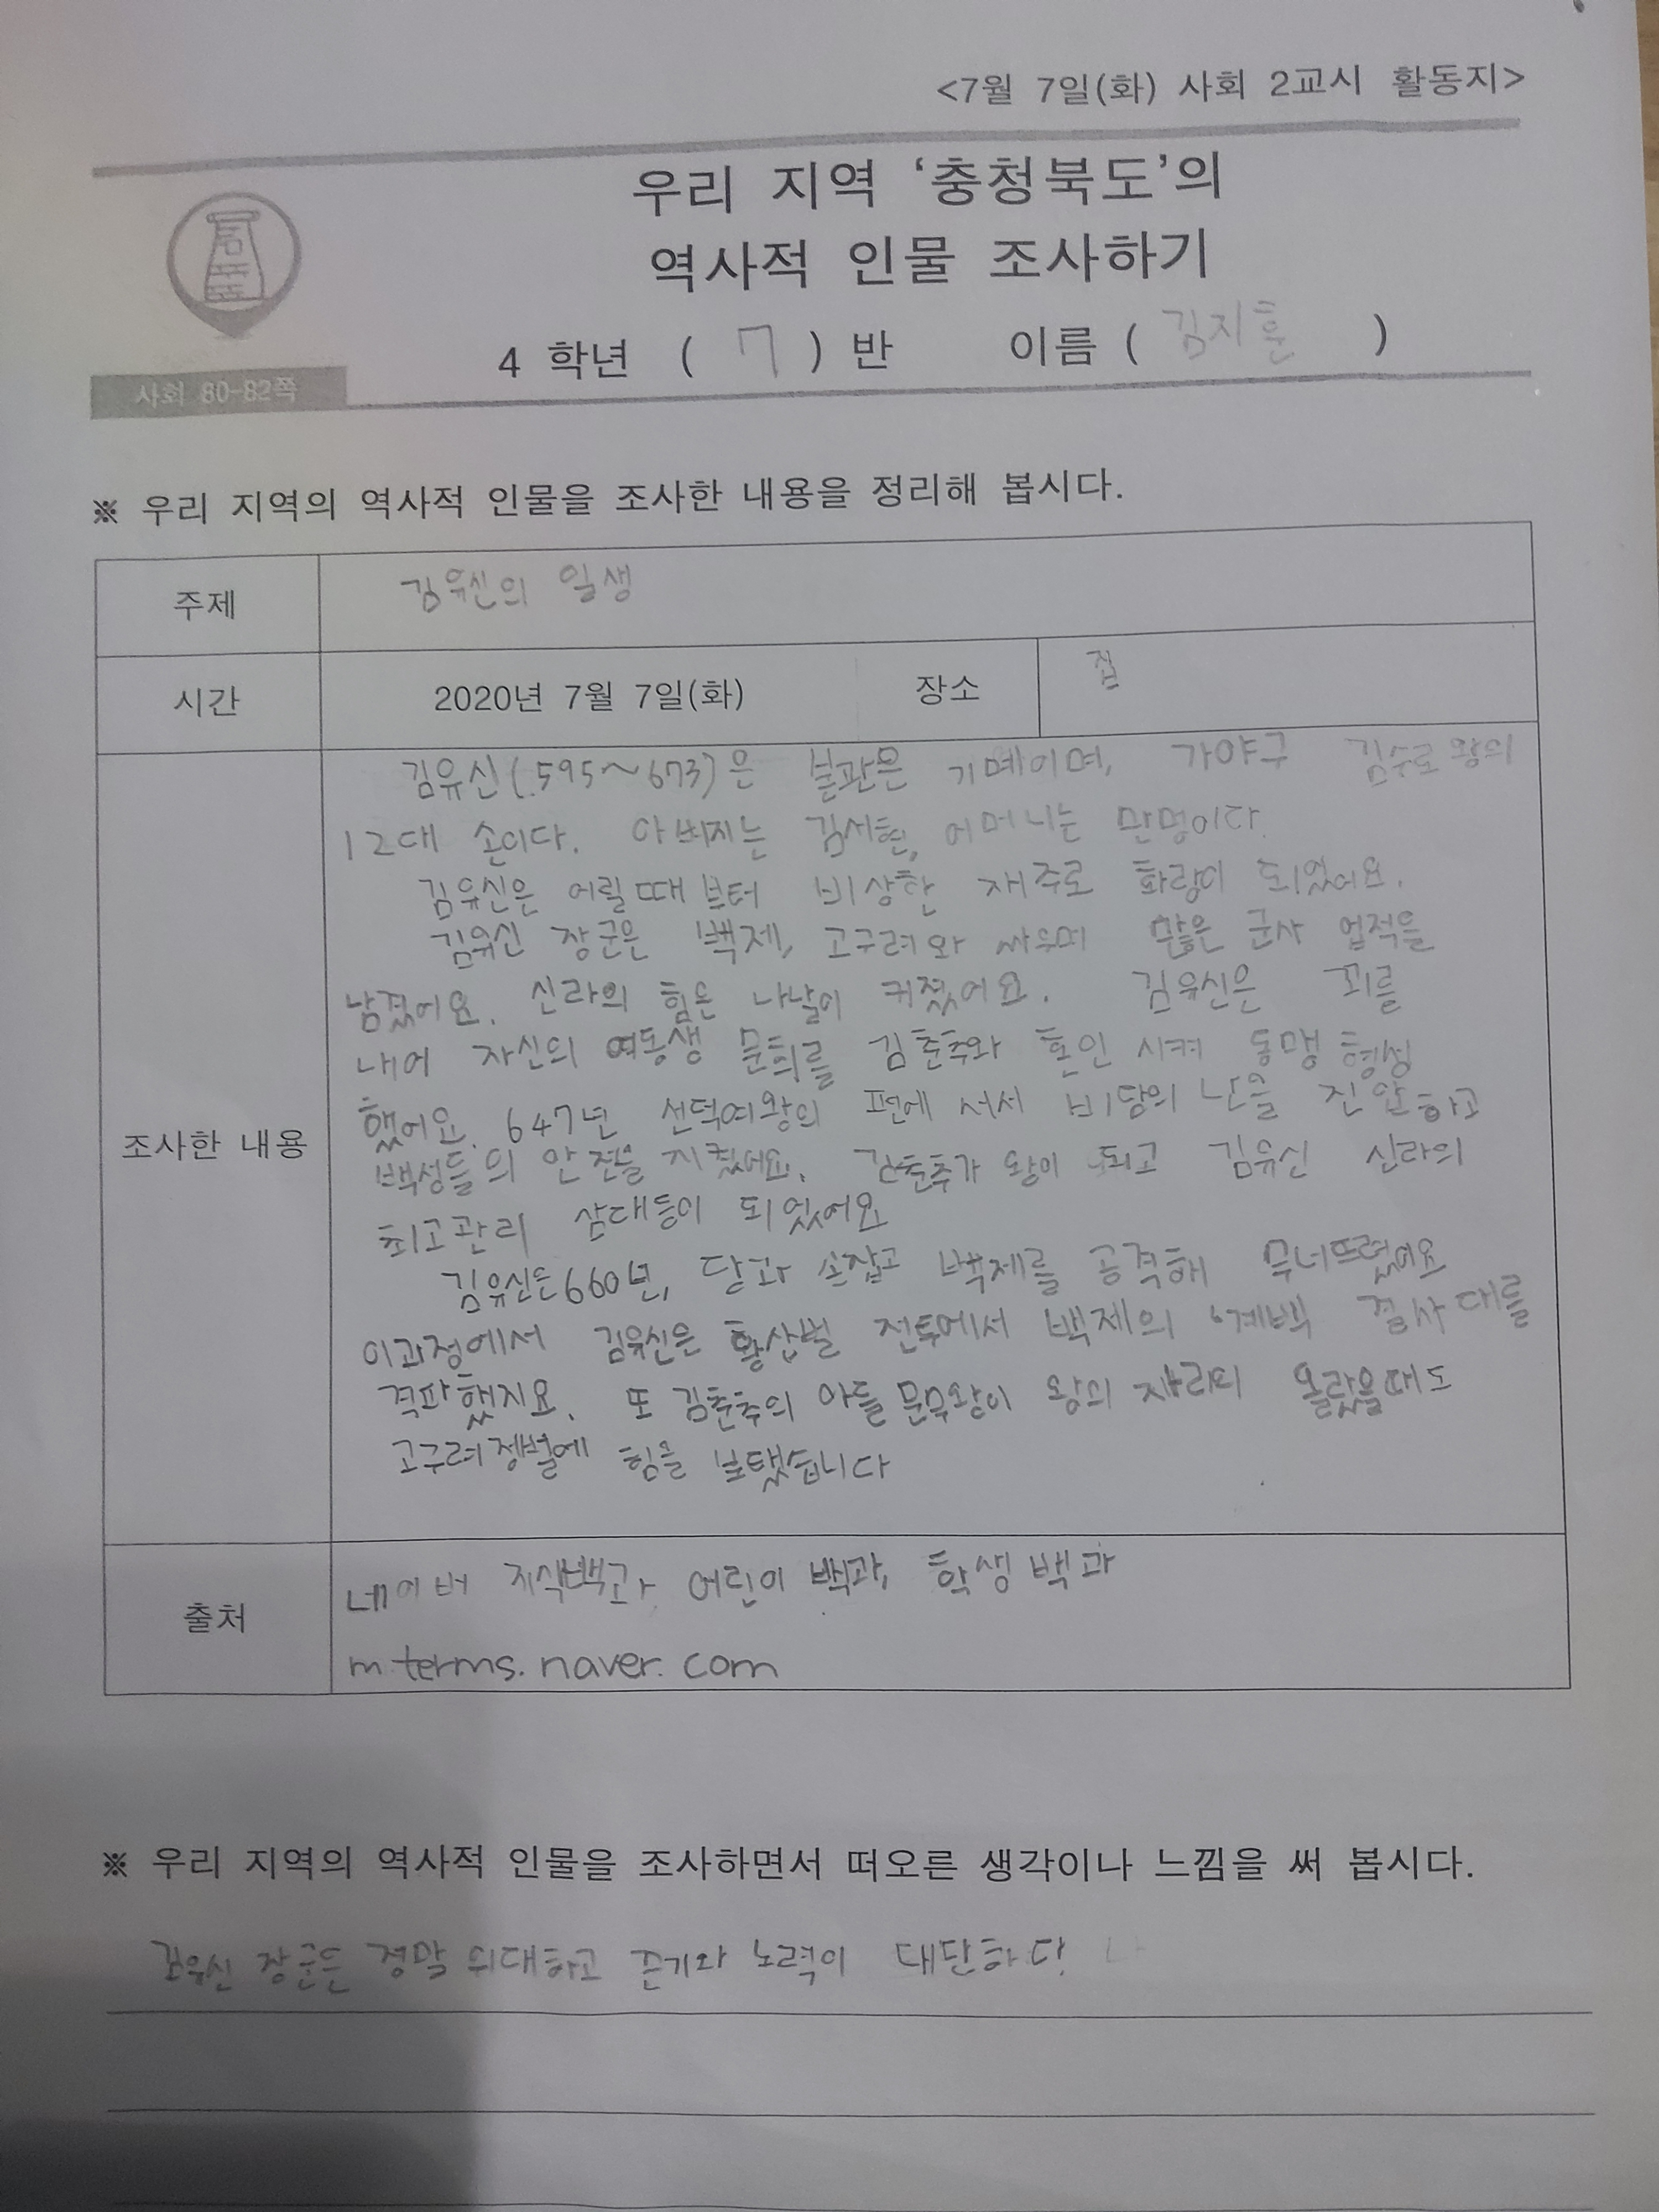 <7월 7일(화) 사회 2교시 활동지>
우리 지역 ‘충청북도’의
역사적 인물 조사하기
4 학년 ( 7 ) 반 이름 ( 김지훈 )
사회 80-82쪽
※ 우리 지역의 역사적 인물을 조사한 내용을 정리해 봅시다.
주제 김유신의 일생
시간 2020년 7월 7일(화) 장소 집
조사한 내용
김유신(595~673)은 본관은 기메이며, 가야구 김수로왕의
12대 손이다. 아버지는 김서현, 어머니는 만명이다.
김유신은 어릴때부터 비상한 재주로 화랑이 되었어요.
김유신 장군은 백제, 고구려와 싸우며 많은 군사 업적을
남겼어요. 신라의 힘은 나날이 커졌어요. 김유신은 꾀를
내어 자신의 여동생 문희를 김춘추와 혼인 시켜 동맹 형성
했어요. 647년 선덕여왕의 편에 서서 비담의 난을 진압하고
백성들의 안전을 지켰어요. 김춘추가 왕이 되고 김유신 신라의
최고관리 삼대등이 되었어요
김유신은 660년, 당과 손잡고 백제를 공격해 무너뜨렸어요
이과정에서 김유신은 황산벌 전투에서 백제의 계백 결사대를
격파했지요. 또 김춘추의 아들 문무왕이 왕의 자리의 올랐을때도
고구려정벌에 힘을 보탰습니다
출처
네이버 지식백과, 어린이 백과, 학생백과
m.terms.naver.com
※ 우리 지역의 역사적 인물을 조사하면서 떠오른 생각이나 느낌을 써 봅시다.
김유신 장군은 정말 위대하고 끈기와 노력이 대단하다.